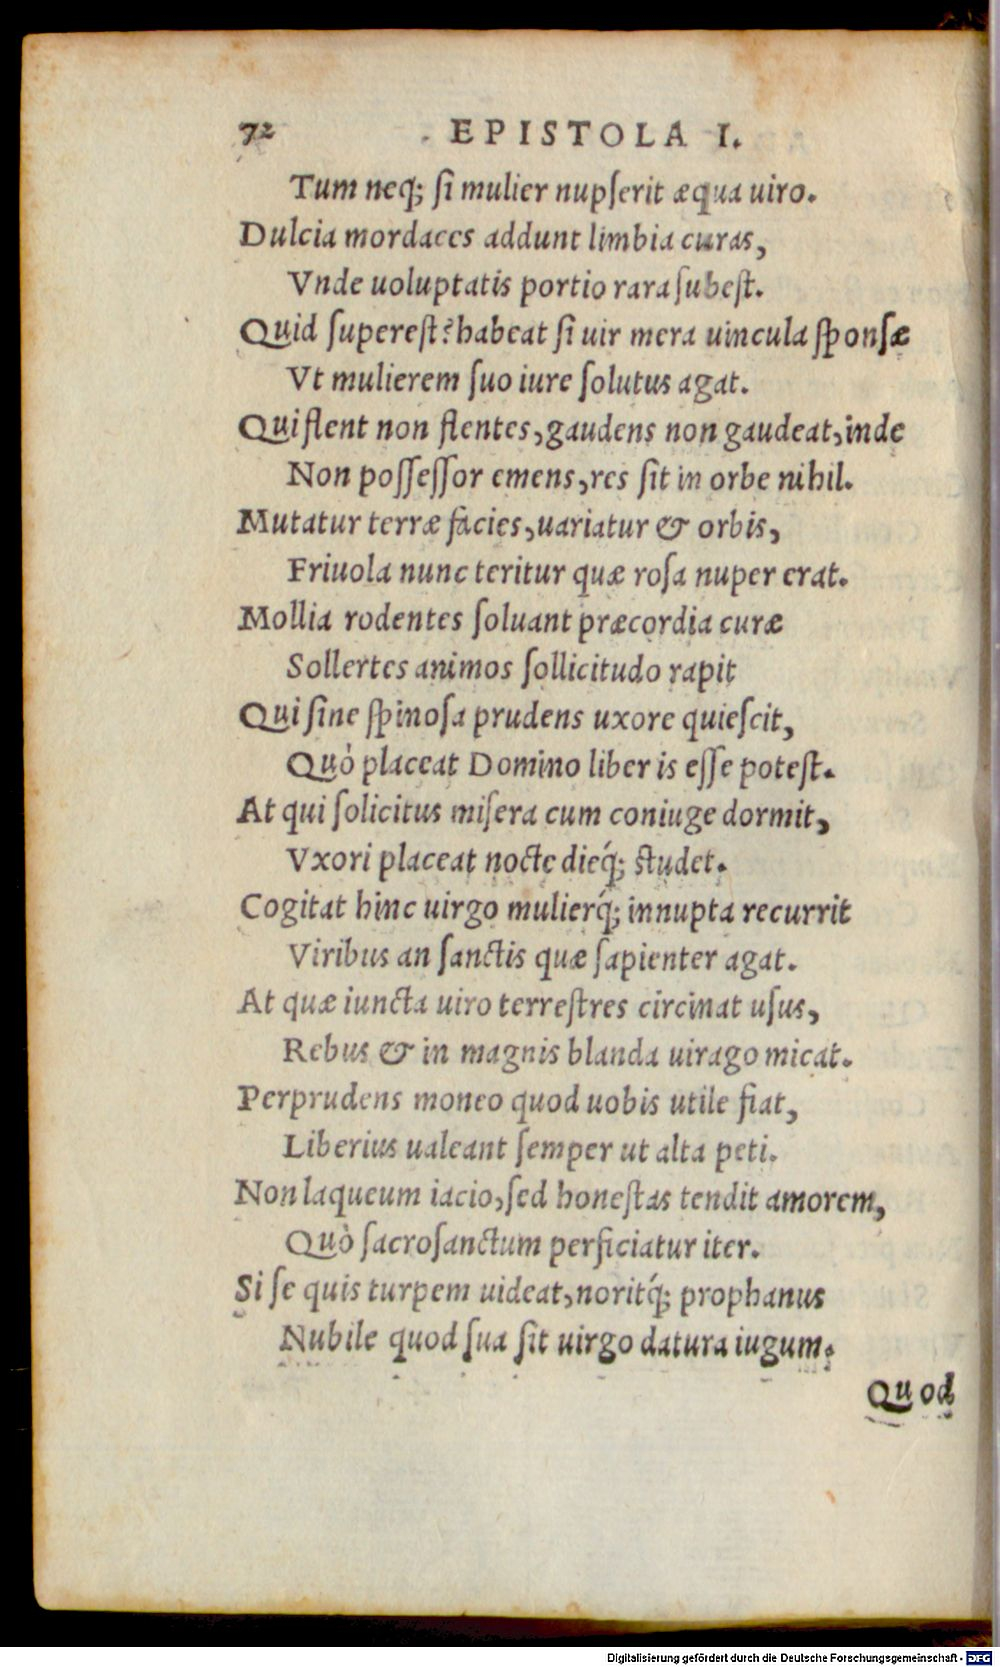 72 EPISTOLA I.
Tum neq́; ſi mulier nupſerit æqua uiro.
Dulcia mordaces addunt limbia curas,
Vnde uoluptatis portio rara ſubeſt.
Quid ſupereſt? habeat ſi uir mera uincula ſponſæ
Vt mulierem ſuo iure ſolutus agat.
Qui flent non flentes, gaudens non gaudeat, inde
Non poſſeſſor emens, res ſit in orbe nihil.
Mutatur terræ facies, uariatur & orbis,
Friuola nunc teritur quæ roſa nuper erat.
Mollia rodentes ſoluant præcordia curæ
Sollertes animos ſollicitudo rapit
Qui ſine ſpinoſa prudens uxore quieſcit,
Quò placeat Domino liber is eſſe poteſt.
At qui ſolicitus miſera cum coniuge dormit,
Vxori placeat nocte dieq́; ſtudet.
Cogitat hinc uirgo mulierq́; innupta recurrit
Viribus an ſanctis quæ ſapienter agat.
At quæ iuncta uiro terreſtres circinat uſus,
Rebus & in magnis blanda uirago micat.
Perprudens moneo quod uobis utile fiat,
Liberius ualeant ſemper ut alta peti.
Non laqueum iacio, ſed honeſtas tendit amorem,
Quò ſacroſanctum perficiatur iter.
Si ſe quis turpem uideat, noritq́; prophanus
Nubile quod ſua ſit uirgo datura iugum.
Quod
Digitalisierung gefördert durch die Deutsche Forschungsgemeinschaft - DFG